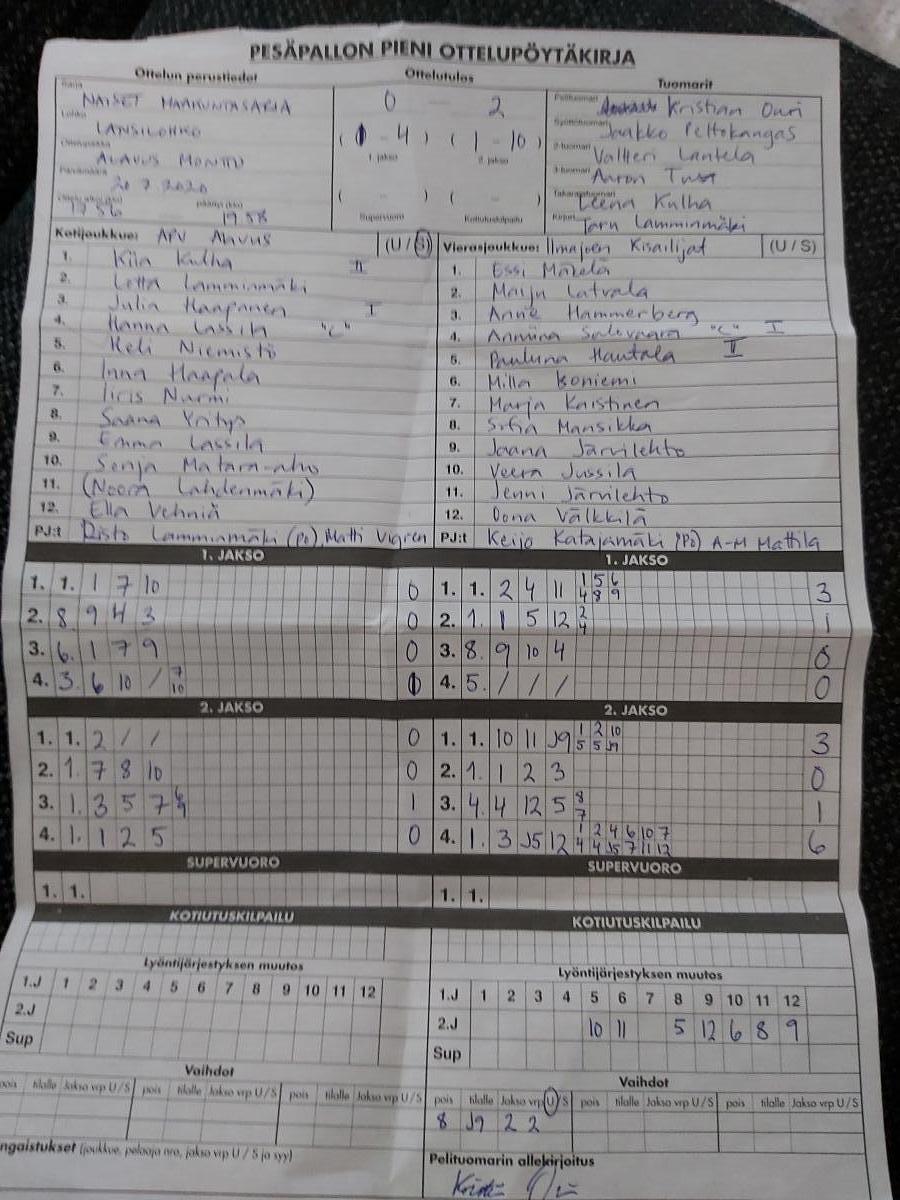 PESÄPALLON PIENI OTTELUPÖYTÄKIRJA
Ottelun perustiedot Ottelutulos Tuomarit
Sarja NAISET MAAKUNTASARJA 0 - 2 Pelituomari Kristian Ouri
Lohko LÄNSILOHKO (0 - 4) (1 - 10) Syöttötuomari Jaakko Peltokangas
1. jakso 2. jakso
Ottelupaikka ALAVUS MONTTU 2-tuomari Valtteri Lantela
Päivämäärä 20 7 2020 3-tuomari Aaron
( - ) ( - ) Takarajatuomari Leena Kulha
1756 päättyi (klo) 1958 Supervuoro Kotiutuskilpailu Kirjuri Taru Lamminmäki
Kotijoukkue: APV Alavus (U/S) Vierasjoukkue: Ilmajoen Kisailijat (U/S)
1. Kiia Kulha II 1. Essi Mäkelä
2. Lotta Lamminmäki 2. Maiju Latvala
3. Julia Haapanen I 3. Anne Hammerberg
4. Hanna Lassila "C" 4. Anniina Salovaara "C" I
5. Heli Niemistö 5. Pauliina Hautala II
6. Inna Haapala 6. Milla Boniemi
7. Iiris Nurmi 7. Marja Kaistinen
8. Saana Yritys 8. Sofia Mansikka
9. Emma Lassila 9. Jaana Järvilehto
10. Senja Matara-aho 10. Veera Jussila
11. (Noora Lahdenmäki) 11. Jenni Järvilehto
12. Ella Vehniä 12. Oona Välkkilä
PJ:t Risto Lamminmäki (PJ), Matti Vigren PJ:t Keijo Katajamäki (PJ) A-M Mattila
1. JAKSO 1. JAKSO
1. 1. 1 7 10 0 1. 1. 2 4 11 1/4 5/8 6/9 3
2. 8 9 4 3 0 2. 1. 1 5 12 2/4 1
3. 6. 1 7 9 0 3. 8. 9 10 4 0
4. 3. 6 10 / 7/10 0 4. 5. / / / 0
2. JAKSO 2. JAKSO
1. 1. 2 / / 0 1. 1. 10 11 J9 1/5 2/5 10/J9 3
2. 1. 7 8 10 0 2. 1. 1 2 3 0
3. 1. 3 5 7 6/9 1 3. 4. 4 12 5 8/7 1
4. 1. 1 2 5 0 4. 1. 3 J5 12 1/4 2/4 4/J5 6/7 10/11 7/12 6
SUPERVUORO SUPERVUORO
1. 1. 1. 1.
KOTIUTUSKILPAILU KOTIUTUSKILPAILU
Lyöntijärjestyksen muutos Lyöntijärjestyksen muutos
1.J 1 2 3 4 5 6 7 8 9 10 11 12 1.J 1 2 3 4 5 6 7 8 9 10 11 12
2.J 2.J 10 11 5 12 6 8 9
Sup Sup
Vaihdot Vaihdot
pois tilalle Jakso vrp U/S pois tilalle Jakso vrp U/S pois tilalle Jakso vrp U/S pois tilalle Jakso vrp U/S pois tilalle Jakso vrp U/S pois tilalle Jakso vrp U/S
8 J9 2 2
ngaistukset (joukkue, pelaaja nro, jakso vrp U / S ja syy) Pelituomarin allekirjoitus